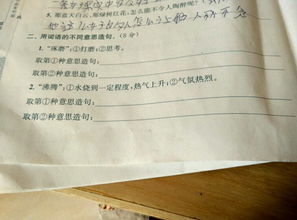 5. 那蓝天白云，那绿树红花，怎么能不令人陶醉呢？
二、用词语的不同意思造句。(8分)
1. “琢磨”：①打磨；②思考。
取第①种意思造句：
取第②种意思造句：
2. “沸腾”：①水烧到一定程度，热气上升；②气氛热烈。
取第①种意思造句：
取第②种意思造句：